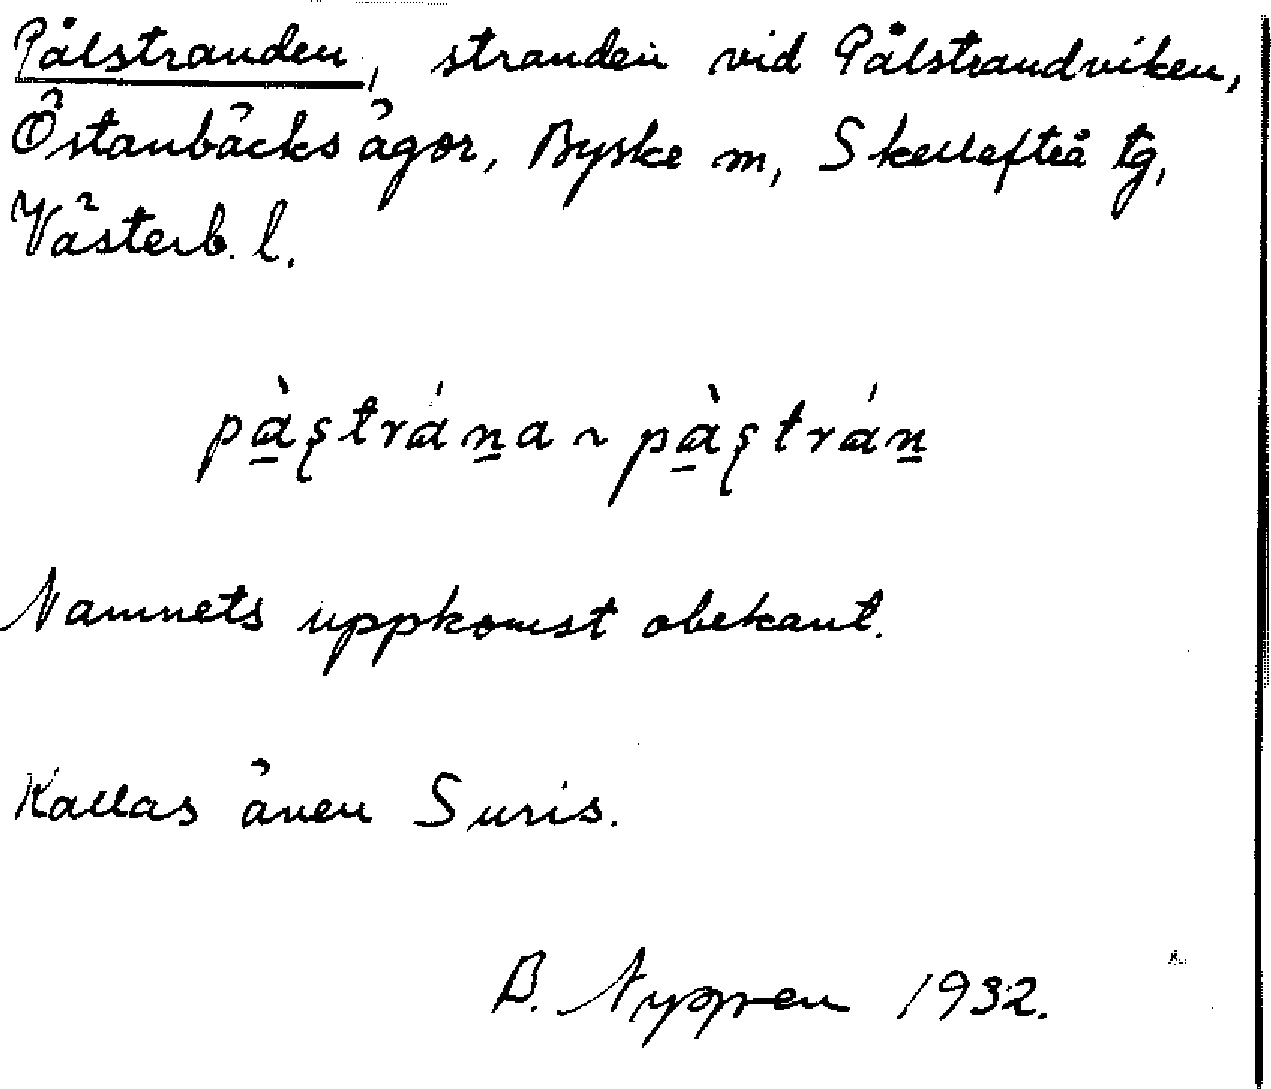 Pålstranden, stranden vid Pålstrandviken,
Östanbäcks ägor, Byske m, Skellefteå tg,
Västerb. l.
pà̱ştrán̠a ~ pà̱ştrán̠
Namnets uppkomst obekant.
Kallas även Suris.
B. Nygren 1932.